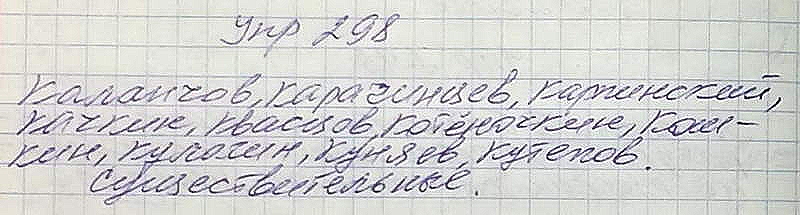 Упр 298
Каланчов, Карачинцев, Карпинский,
Качкин, Квасцов, Котёночкин, Кош-
кин, Кулагин, Куняев, Кутепов.
Существительные.